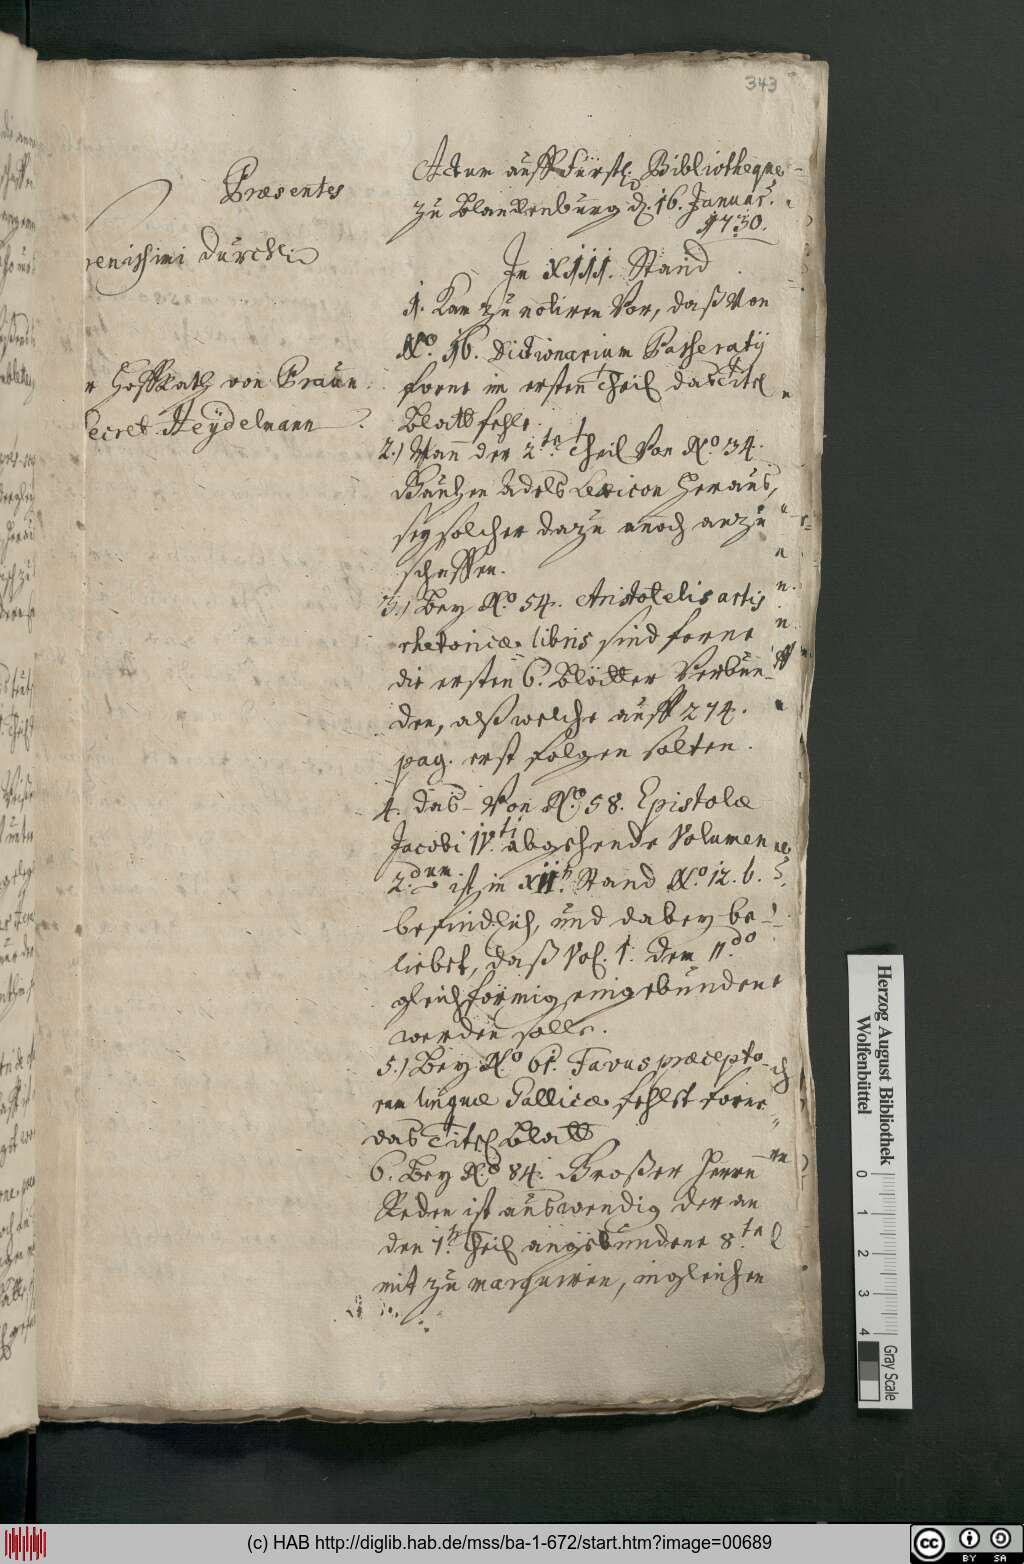 343
Præsentes
renissimi Durchl.
r HoffRath von Praun
Secret. Heÿdelmann
Actum auff Fürstl. Bibliotheque
zu Blanckenburg d. 16. Januar.
1730.
In XIII. Stand
1. Kam zu notiren vor, daß von
No. 16. Dictionarium Passeratij
forne im ersten Theil das Titel
Blatt fehle.
2.) Wann der 2te Theil von No. 34.
Adels Lexicon heraus,
sey solcher dazu annoch anzu
schaffen.
3.) Bey No. 54. Aristotelis artis
rhetoricæ libris sind forne
die ersten 6. Blätter verbun-
den, alß welche auff 274.
pag. erst folgen solten.
4. das von No. 58. Epistolæ
Jacobi IVti abgehende Volumen
2.dum ist in XII. Stand No. 12. b.
befindlich, und dabey be-
liebet, daß Vol. 1. dem IIdo
gleichförmig eingebunden
werden solle.
5.) Bey No. 61. Favus præcepto-
rum linguæ Gallicæ fehlet forne
das Titel Blatt
6. Bey No. 84. Großer Herrn
Reden ist auswendig der an
den 7. Theil angebundene 8te
mit zu marquiren, ingleichen
Herzog August Bibliothek
Wolfenbüttel
0 1 2 3 4
Gray Scale
(c) HAB http://diglib.hab.de/mss/ba-1-672/start.htm?image=00689
cc BY SA